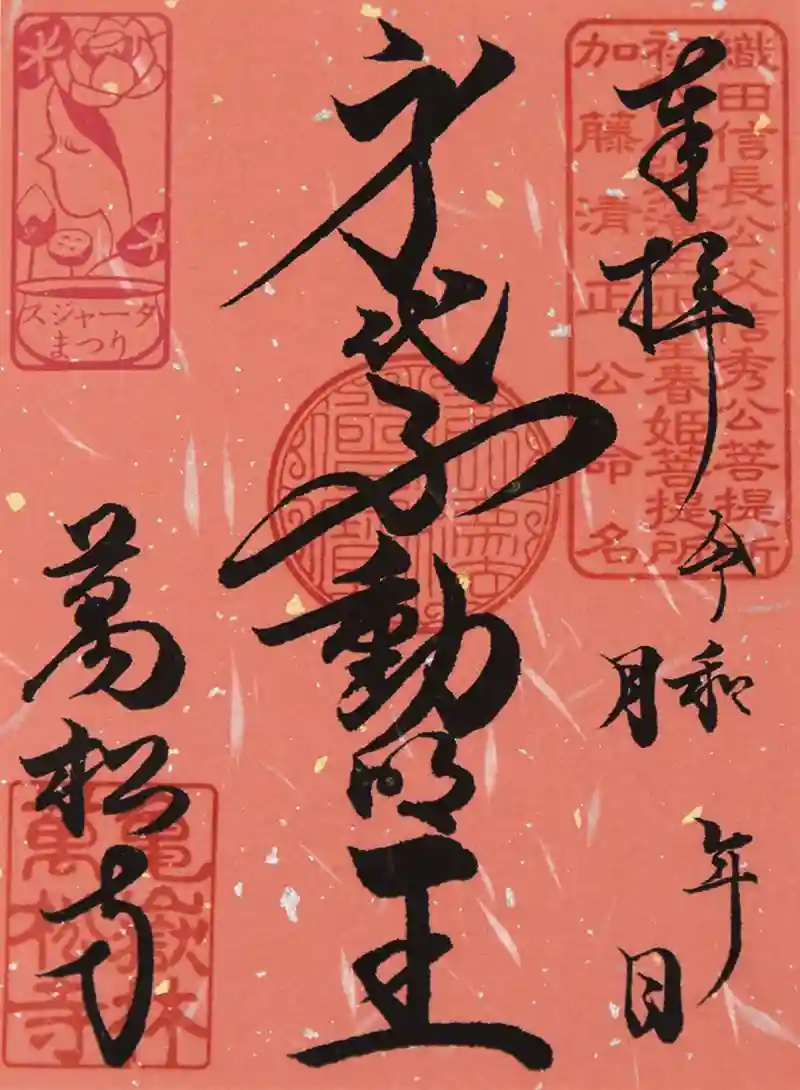 奉拝
令和 年
月 日
織田信長公父信秀公菩提所
加藤清正公命名
身代不動明王
スジャータ
まつり
萬松寺
亀嶽林
萬松寺